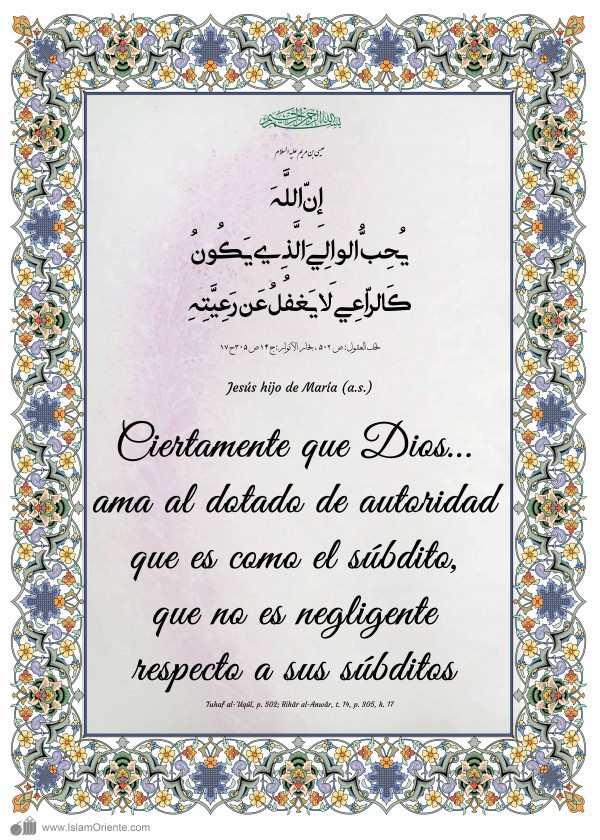 بسم الله الرحمن الرحیم
عیسی بن مریم علیه السلام
إِنّ اللَّهَ
يُحِبُّ الوالِيَ الَّذِي يَكُونُ
كَالرّاعِي لَا يَغفُلُ عَن رَعِيَّتِهِ
تحف العقول: ص ۵۰۲، بحار الأنوار: ج ۱۴ ص ۳۰۵ ح ۱۷
Jesús hijo de María (a.s.)
Ciertamente que Dios...
ama al dotado de autoridad
que es como el súbdito,
que no es negligente
respecto a sus súbditos
Tuhaf al-'Uqûl, p. 502; Bihâr al-Anwâr, t. 14, p. 305, h. 17
www.IslamOriente.com